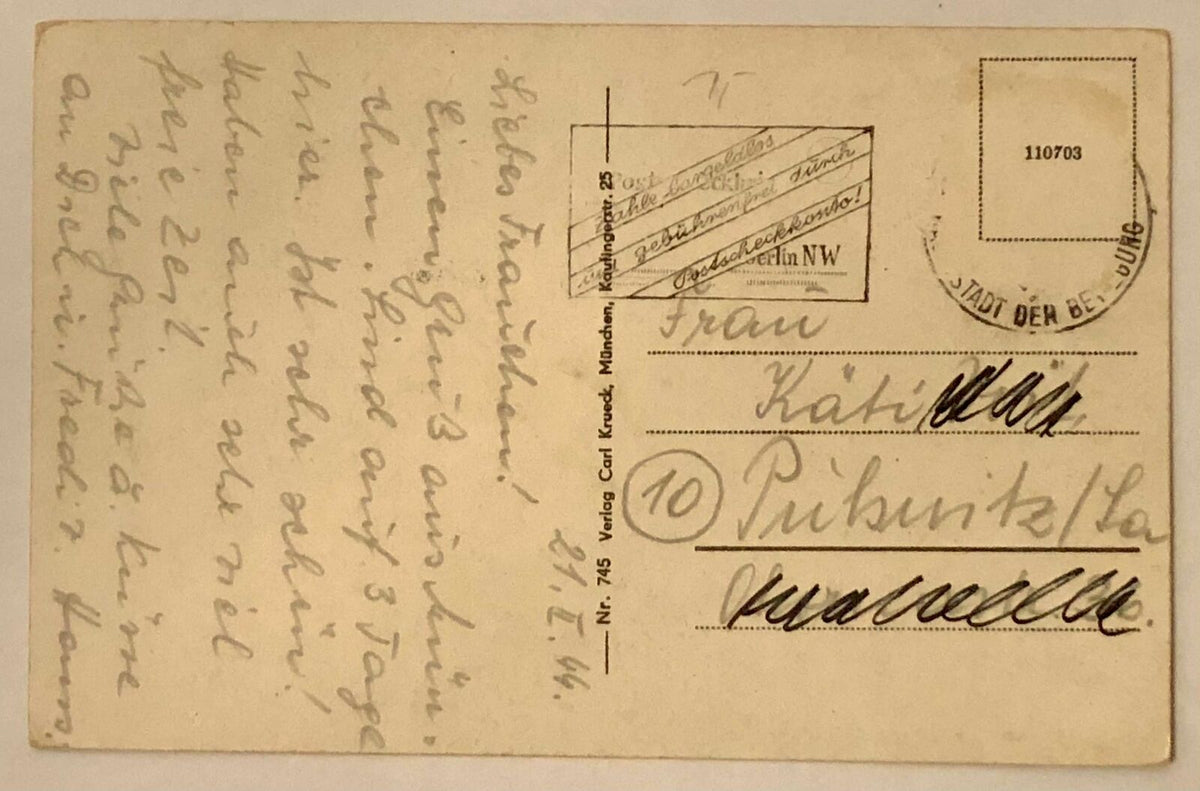 21. II. 44.
Liebes Frauchen!
Einen Gruß aus Mün-
chen. Sind auf 3 Tage
hier. Ist sehr schön!
Haben auch sehr viel
freie Zeit.
Viele Grüße u. Küsse
an Dich u. Fredi v. Hans.
Nr. 745 Verlag Carl Krueck, München, Kaufingerstr. 25
Zahle bargeldlos
und gebührenfrei durch
Postscheckkonto!
Berlin NW
110703
STADT DER BEWEGUNG
Frau
Käti
10 Pulsnitz/Sa